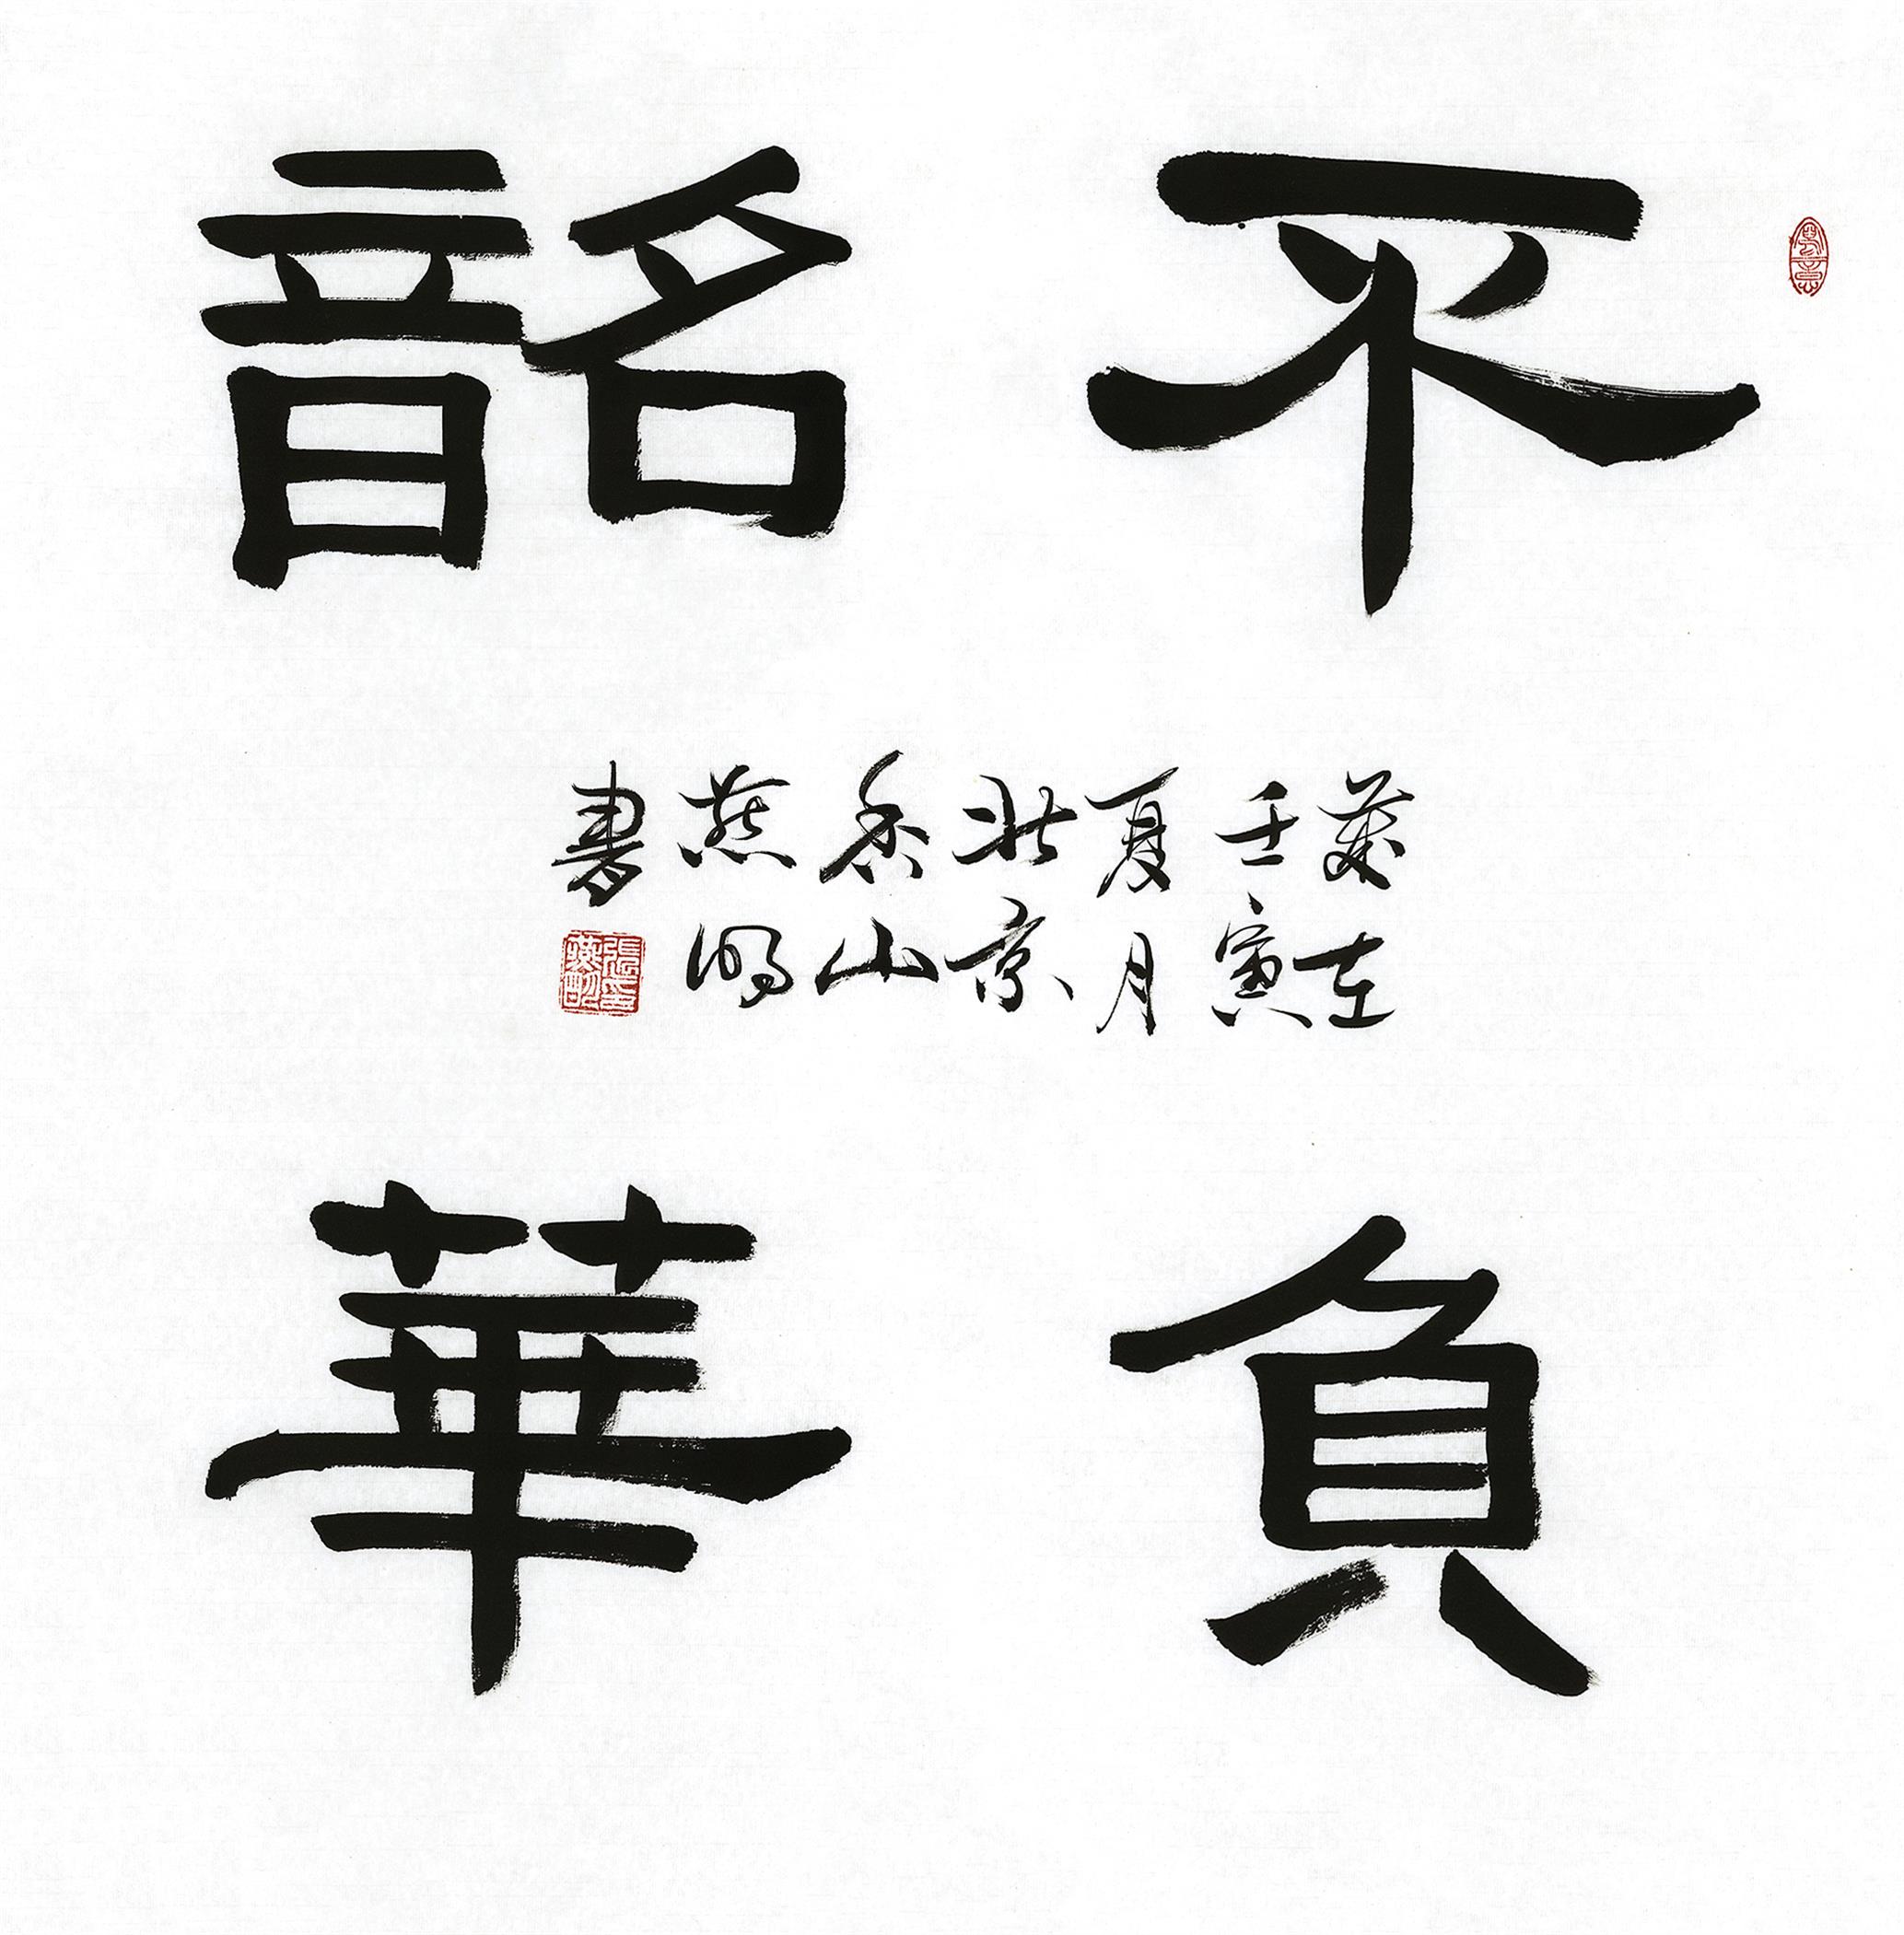 不負
韶華
歲在
壬寅
夏月
北京
香山
燕明
書
張燕明印